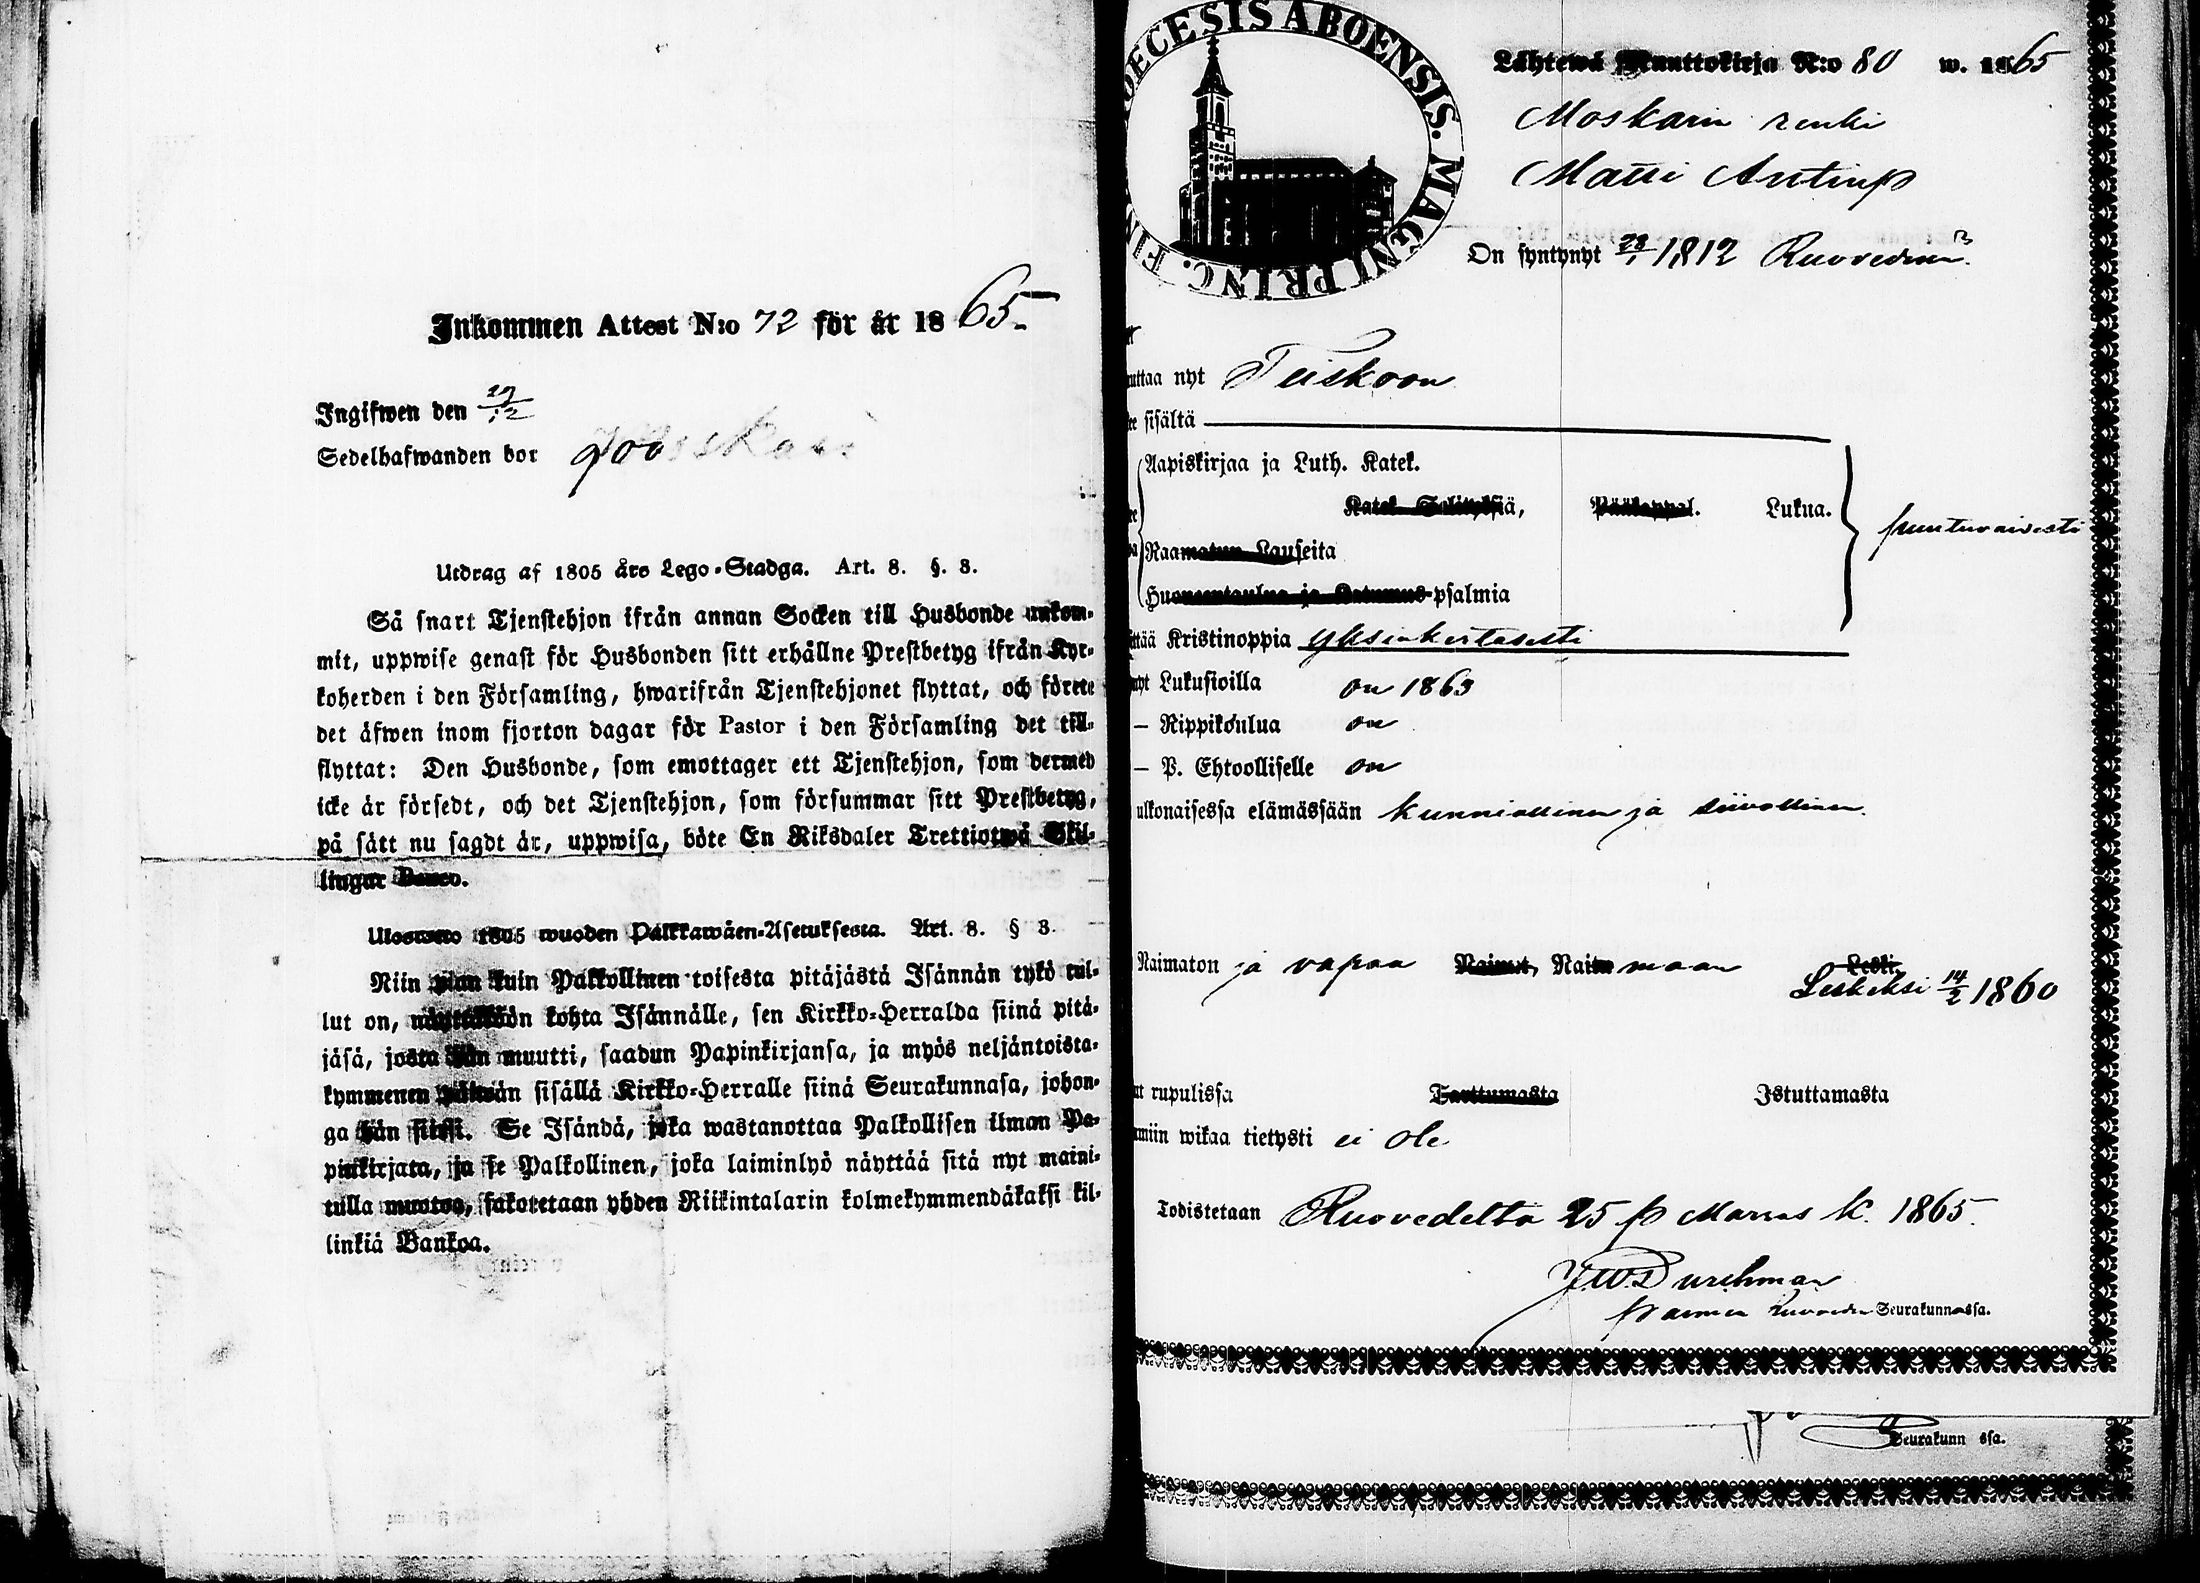 Inkommen Attest N:o 72 för år 1865.
Ingifwen den 29/12
Sedelhafwanden bor
Utdrag af 1805 års Lego-Stadga. Art. 8. §. 3.
Så snart Tjenstehjon ifrån annan Socken till Husbonde ankom-
mit, uppwise genast för Husbonden sitt erhållne Prestbetyg ifrån Kyr-
koherden i den Församling, hwarifrån Tjenstehjonet flyttat, och förete
det äfwen inom fjorton dagar för Pastor i den Församling det till-
flyttat: Den Husbonde, som emottager ett Tjenstehjon, som dermed
icke är försedt, och det Tjenstehjon, som försummar sitt Prestbetyg,
på sätt nu sagdt är, uppwisa, böte En Riksdaler Trettiotwå Skil-
lingar Banco.
Ulosweto 1805 wuoden Palkkawäen-Asetuksesta. Art. 8. § 3.
Niin pian kuin Palkollinen toisesta pitäjästä Isännän tykö tul-
lut on, näyttäköön kohta Isännälle, sen Kirkko-Herralda siinä pitä-
jäsä, josta hän muutti, saadun Papinkirjansa, ja myös neljäntoista-
kymmenen päiwän sisällä Kirkko-Herralle siinä Seurakunnasa, johon-
ga hän siirsi. Se Isändä, joka wastanottaa Palkollisen ilman Pa-
pinkirjata, ja se Palkollinen, joka laiminlyö näyttää sitä nyt maini-
tulla muotoa, sakotetaan yhden Riikintalarin kolmekymmendäkaksi kil-
linkiä Bankoa.
DECESIS ABOENSIS. MAGNI PRINC. FIN
Lähtewä Muuttokirja N:o 80 w. 1865
Moskarin renki
Matti Antinp
On syntynyt 28/1 1812 Ruovedellä
uttaa nyt Teiskoon
sisältä
Aapiskirjaa ja Luth. Katek.
Katek. Selityksiä, Pääkappal. Lukua.
puuttuvaisesti
Raamatun Lauseita
Huoneentaulua ja Katumus-psalmia
ttää Kristinoppia yksinkertasesti
nyt Lukusioilla on 1863
— Rippikoulua on
— P. Ehtoolliselle on
ulkonaisessa elämässään kunniallinen ja siivollinen.
Naimaton ja vapaa Nainut, Naimaan Leski
Leskeksi 14/2 1860
rupulissa Tarttumasta Istuttamasta
miin wikaa tietysti ei ole
Todistetaan Ruovedeltä 25 p Marras k. 1865.
J.W. Durchman
Ruoveden Seurakunnassa.
Seurakunn ssa.